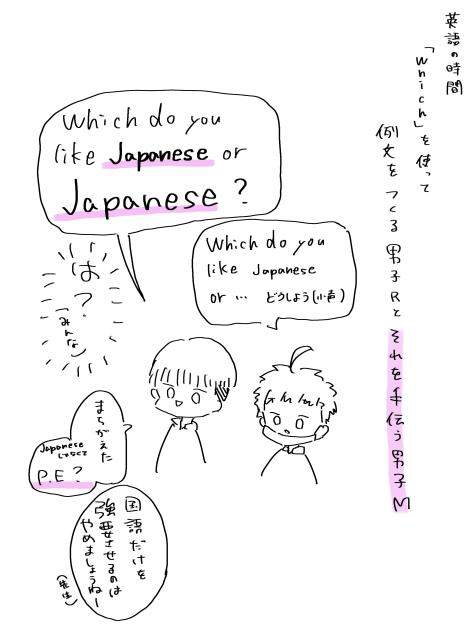 英語の時間
「which」を使って
例文をつくる男子Rとそれを手伝う男子M
Which do you
like Japanese or
Japanese?
Which do you
like Japanese
or … どうしよう(小声)
は?
(みんな)
まちがえた
Japanese
じゃなくて
P.E?
国語だけを
強要させるのは
やめましょうねー
(先生)